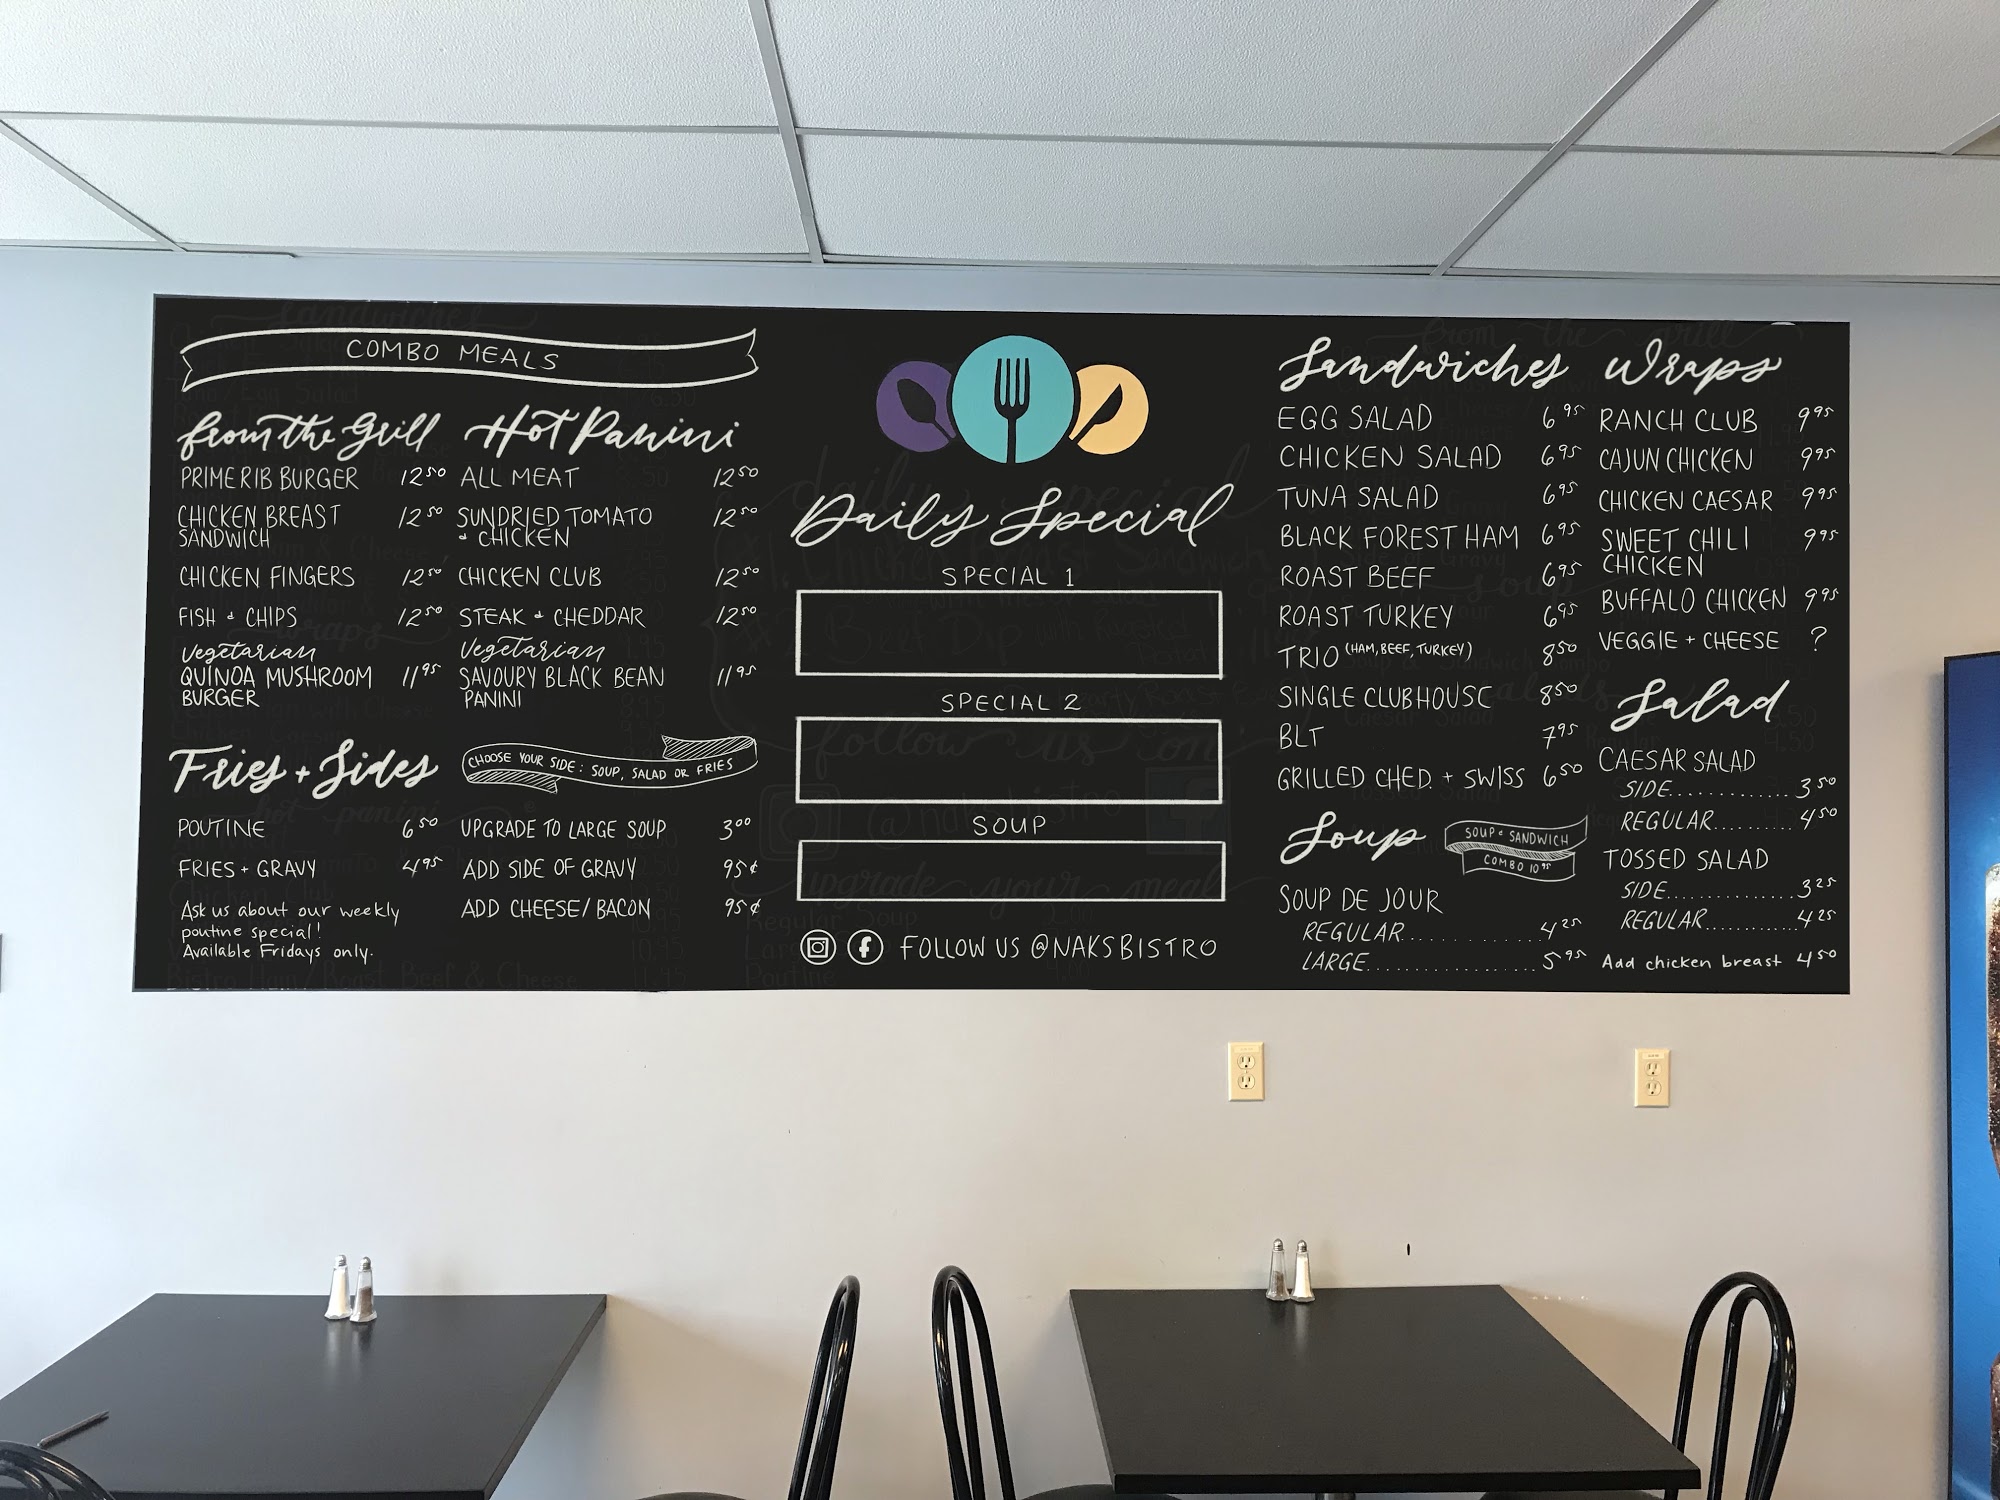 COMBO MEALS
from the Grill
PRIME RIB BURGER 12 50
CHICKEN BREAST 12 50
SANDWICH
CHICKEN FINGERS 12 50
FISH & CHIPS 12 50
Vegetarian
QUINOA MUSHROOM 11 95
BURGER
Hot Panini
ALL MEAT 12 50
SUNDRIED TOMATO 12 50
& CHICKEN
CHICKEN CLUB 12 50
STEAK & CHEDDAR 12 50
Vegetarian
SAVOURY BLACK BEAN 11 95
PANINI
Fries + Sides
CHOOSE YOUR SIDE: SOUP, SALAD OR FRIES
POUTINE 6 50
FRIES + GRAVY 4 95
Ask us about our weekly
poutine special!
Available Fridays only.
UPGRADE TO LARGE SOUP 3 00
ADD SIDE OF GRAVY 95¢
ADD CHEESE/BACON 95¢
Daily Special
SPECIAL 1
SPECIAL 2
SOUP
FOLLOW US @NAKSBISTRO
Sandwiches
EGG SALAD 6 95
CHICKEN SALAD 6 95
TUNA SALAD 6 95
BLACK FOREST HAM 6 95
ROAST BEEF 6 95
ROAST TURKEY 6 95
TRIO (HAM, BEEF, TURKEY) 8 50
SINGLE CLUBHOUSE 8 50
BLT 7 95
GRILLED CHED. + SWISS 6 50
Soup
SOUP & SANDWICH
COMBO 10 95
SOUP DE JOUR
REGULAR............4 25
LARGE................5 95
Wraps
RANCH CLUB 9 95
CAJUN CHICKEN 9 95
CHICKEN CAESAR 9 95
SWEET CHILI 9 95
CHICKEN
BUFFALO CHICKEN 9 95
VEGGIE + CHEESE ?
Salad
CAESAR SALAD
SIDE.............3 50
REGULAR.........4 50
TOSSED SALAD
SIDE.............3 25
REGULAR............4 25
Add chicken breast 4 50